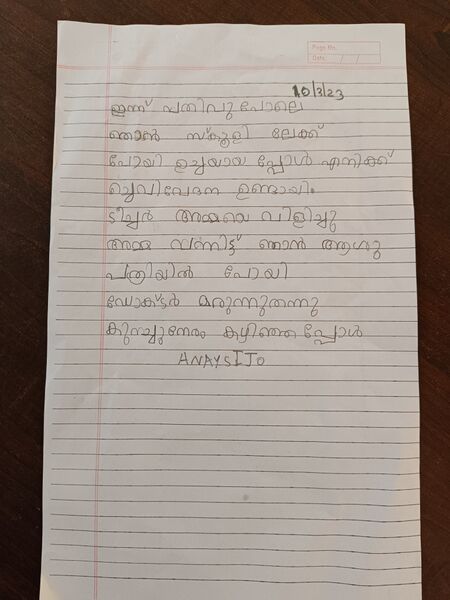 Page No.
Date: / /
10/3/23
ഇന്ന് പതിവു പോലെ
ഞാൻ സ്കൂളി ലേക്ക്
പോയി ഉച്ചയായ പ്പോൾ എനിക്ക്
ച്ചെവിവേദന ഉണ്ടായി.
ടീച്ചർ അമ്മയെ വിളിച്ചു
അമ്മ വന്നിട്ട് ഞാൻ ആശു
പത്രിയിൽ പോയി
ഡോക്ടർ മരുന്നുതന്നു
കുറച്ചുനേരം കഴിഞ്ഞ പ്പോൾ
ANAYSIJO